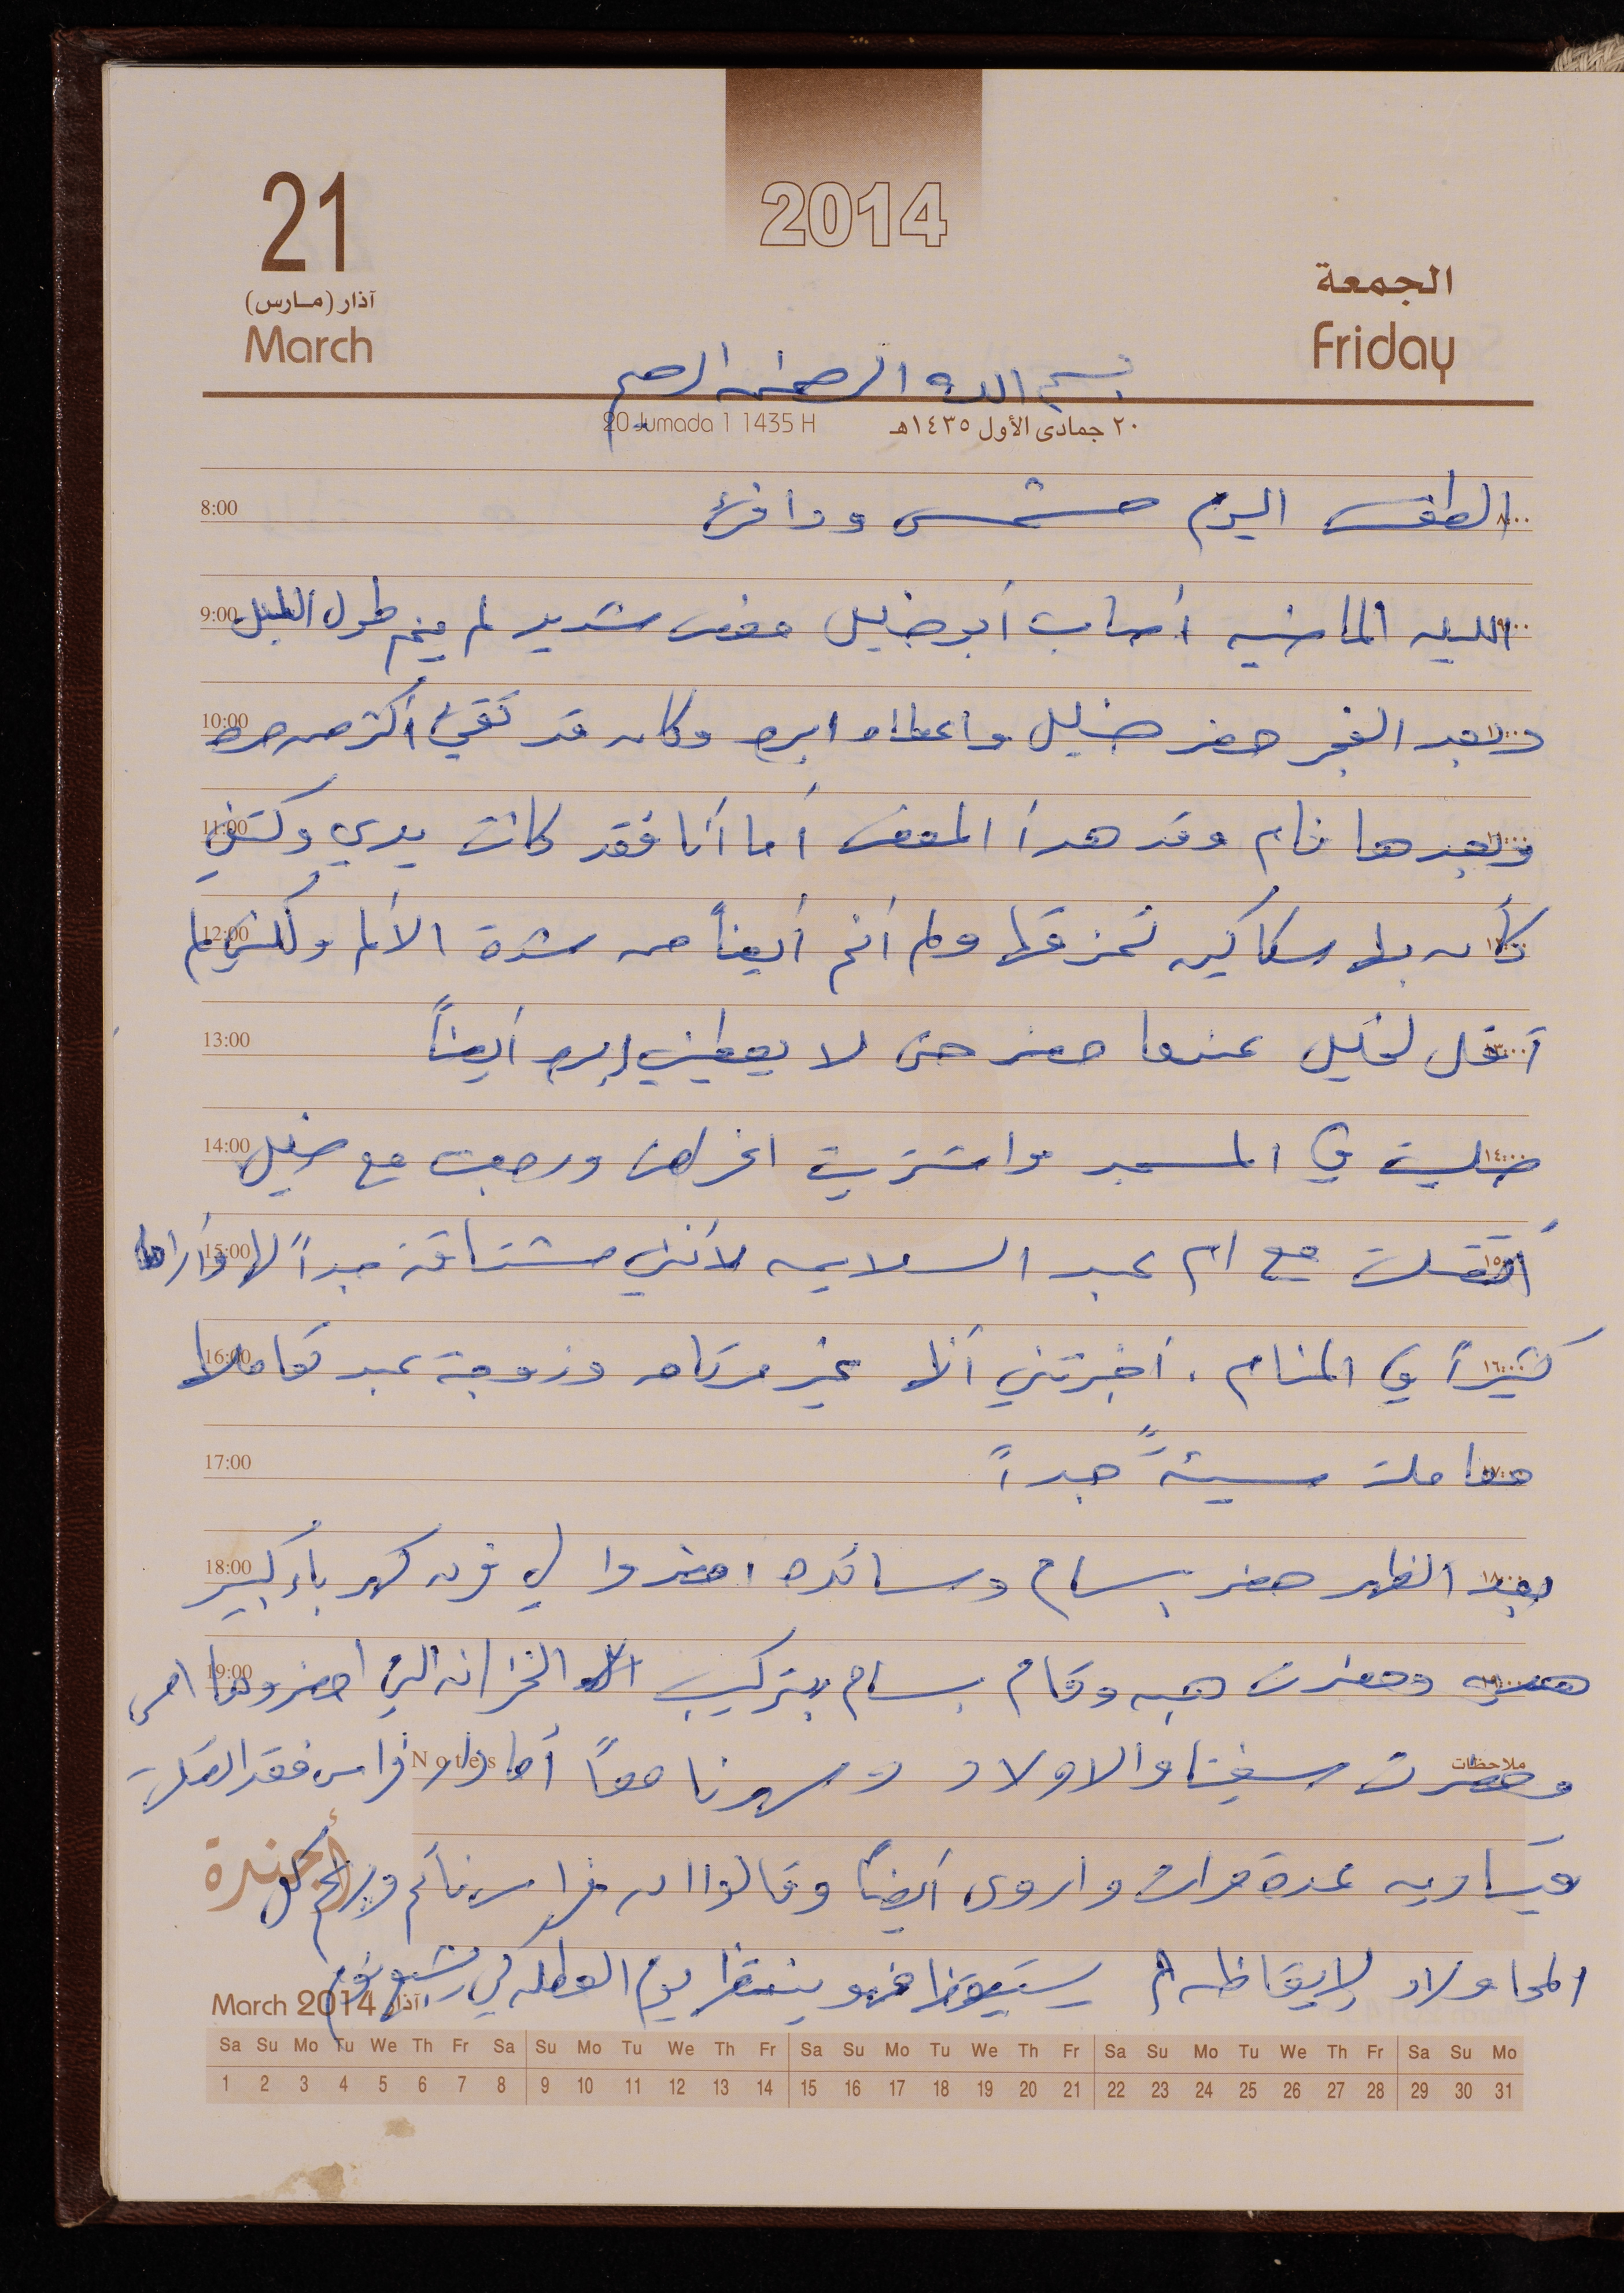 21
2014
الجمعة
آذار (مارس)
March
Friday
بسم الله الرحمن الرحيم
20 Jumada 1 1435 H
٢٠ جمادى الأول ١٤٣٥هـ
8:00 الطقس اليوم مشمس ودافئ ٨:٠٠
9:00 الليله الماضيه أصاب أبو خليل مغص شديد لم ينم طول الليل ٩:٠٠
10:00 وبعد الفجر حضر خليل واعطاه ابره وكان قد تقيئ أكثر من مره ١٠:٠٠
11:00 وبعدها نام وقد هدأ المغص أما أنا فقد كانت يدي وكتفي ١١:٠٠
12:00 كأن بها سكاكين تمزقها ولم أنم أيضاً من شدة الألم ولكني لم ١٢:٠٠
13:00 أقل لخليل عندما حضر حتى لا يعطيني إبره أيضاً ١٣:٠٠
14:00 صليت في المسجد واشتريت اغراض ورجعت مع خليل ١٤:٠٠
15:00 أتصلت مع ام عبد السلايمه لأنني مشتاقة جداً لها وأراها ١٥:٠٠
16:00 كثيراً في المنام . أخبرتني أنها غير مرتاحه وزوجة عبد تعاملها ١٦:٠٠
17:00 معاملة سيئةً جداً ١٧:٠٠
18:00 بعد الظهر حضر بسام وسائده احضروا لي فرن كهرباء كبير ١٨:٠٠
19:00 هديه وحضرت هبه وقام بسام بتركيب الخزانه التي احضروها امس ١٩:٠٠
Notes ملاحظات
وحضرت سفيتا والاولاد وسهرنا معاً أما فراس فقد اتصلت
أجندة
ويساريه عدة مرات واروى أيضاً وقالوا ان فراس نائم ورغم كل
المحاولات لإيقاظه لم يستيقظ فهو ينتظر يوم العطله كي يشبع نوم
March 2014 آذار
Sa Su Mo Tu We Th Fr Sa Su Mo Tu We Th Fr Sa Su Mo Tu We Th Fr Sa Su Mo Tu We Th Fr Sa Su Mo
1 2 3 4 5 6 7 8 9 10 11 12 13 14 15 16 17 18 19 20 21 22 23 24 25 26 27 28 29 30 31